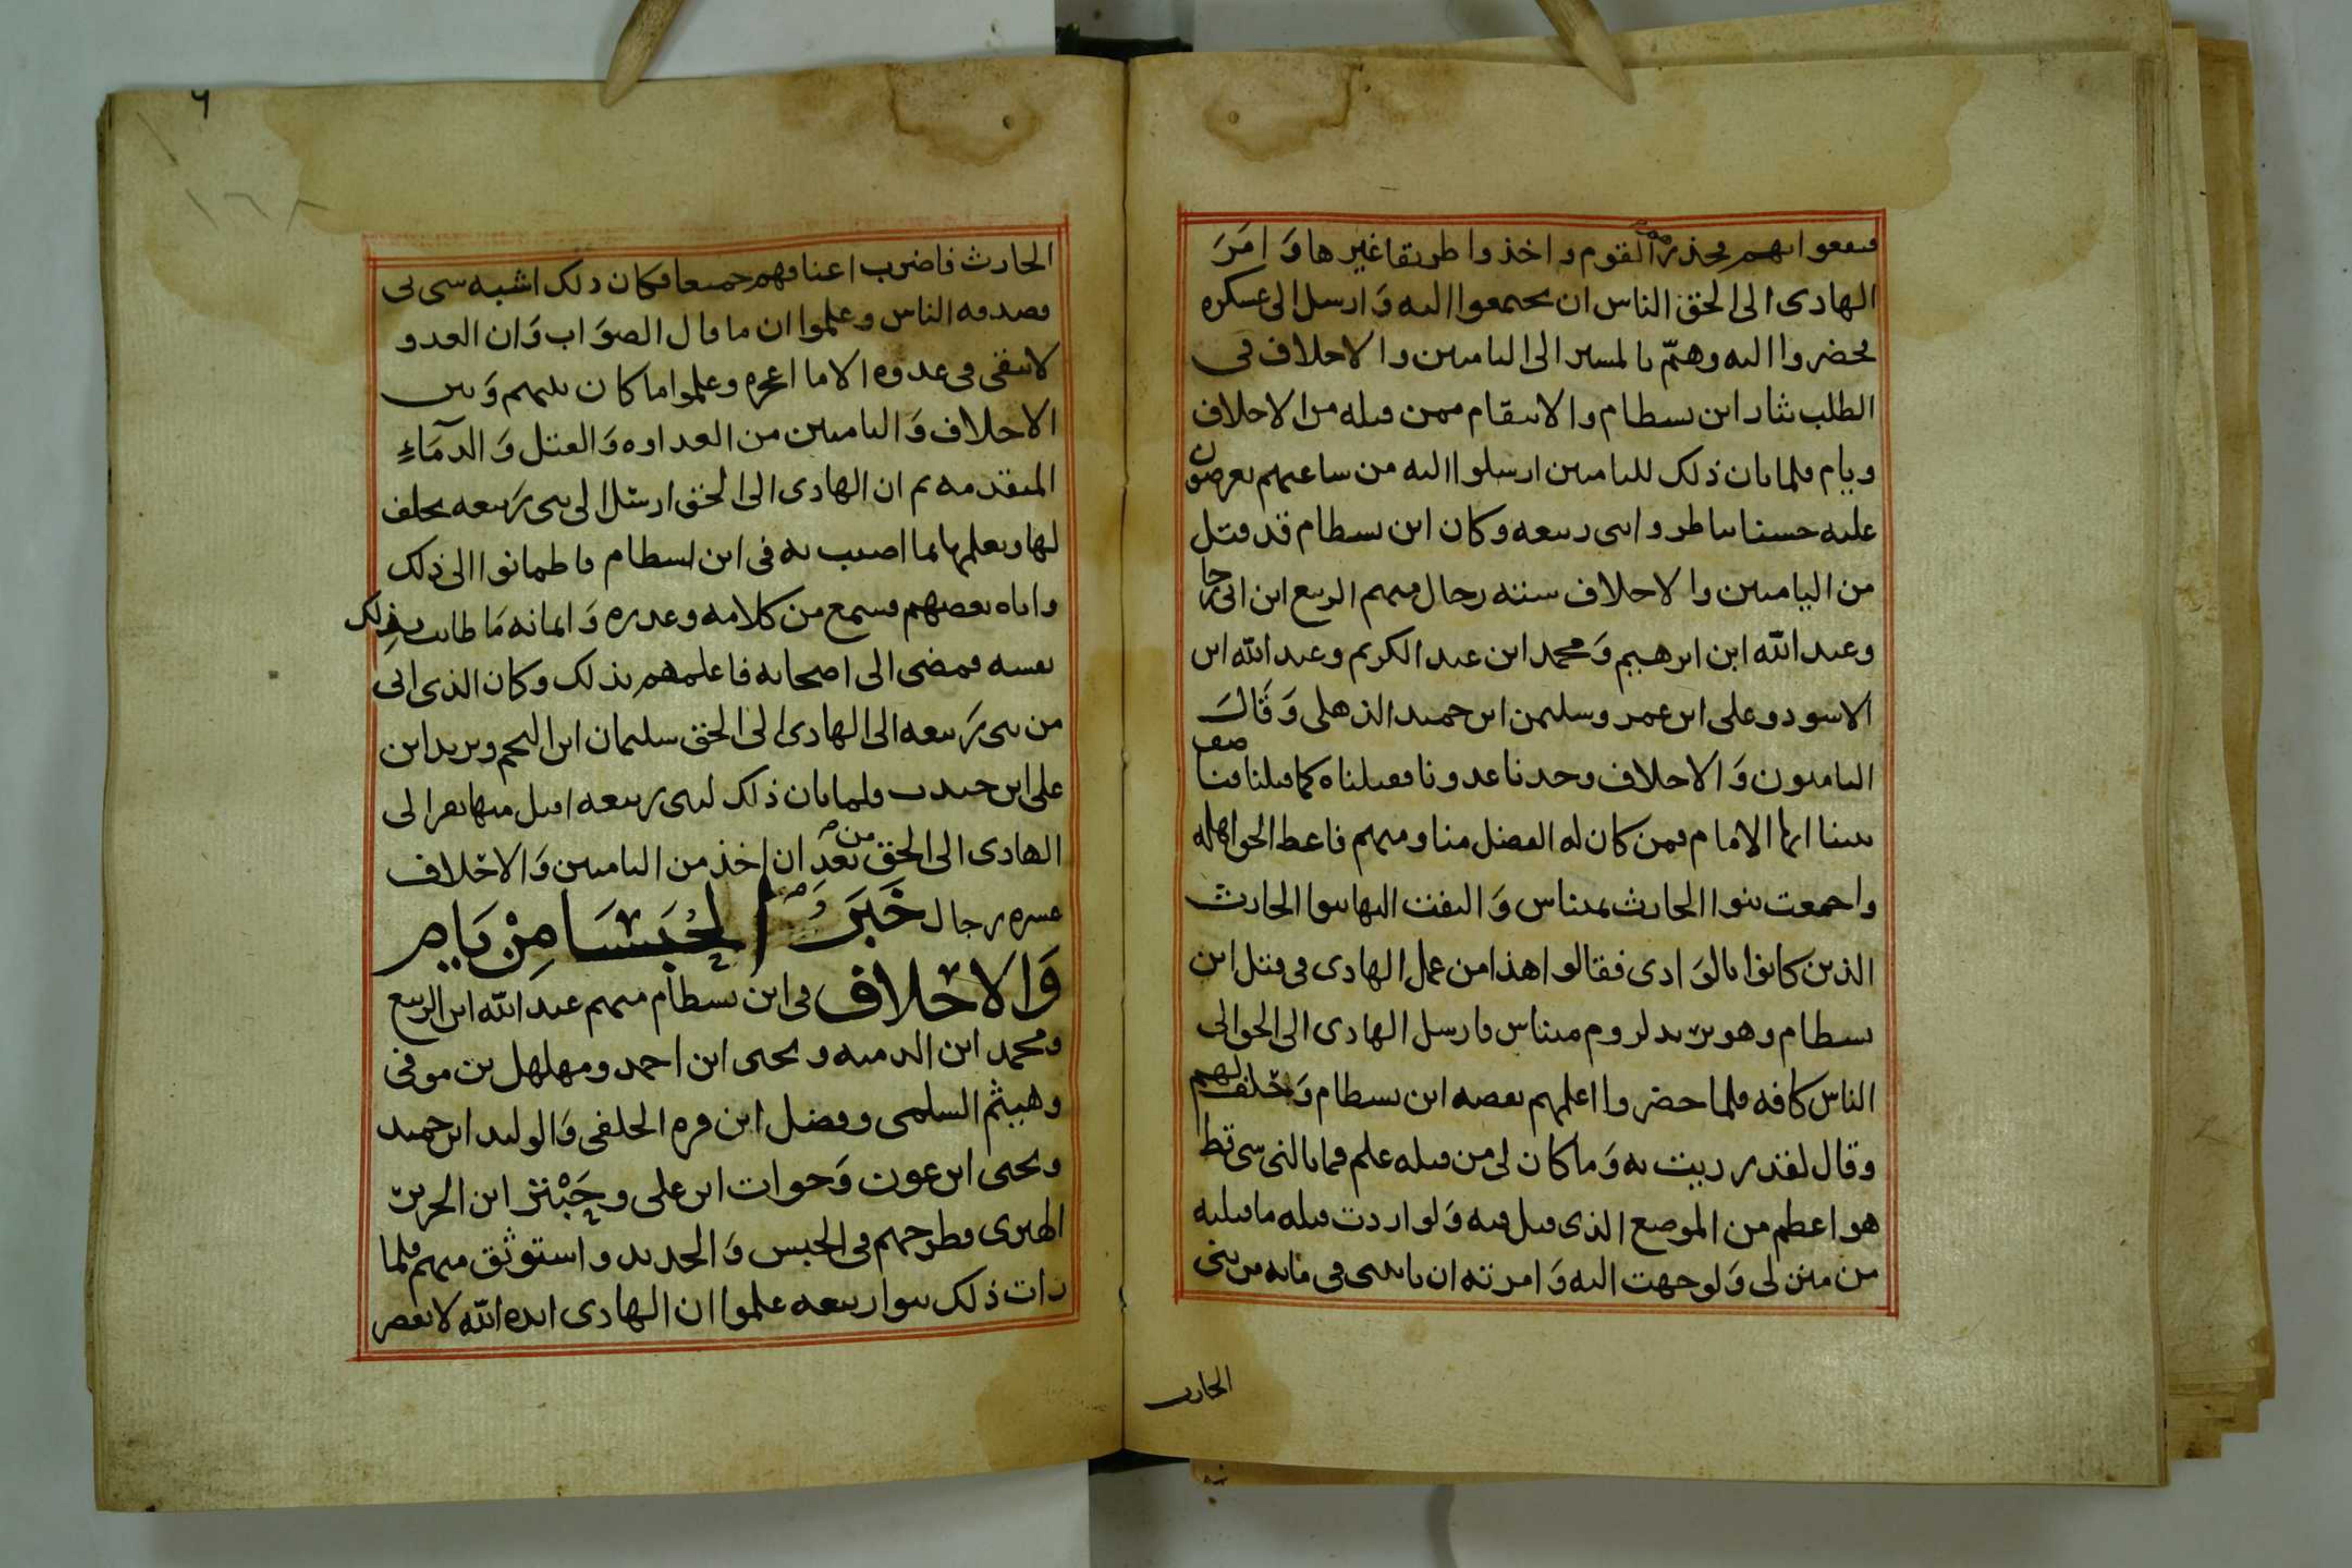 فيقعوا بهم فحذر القوم واخذوا طريقا غيرها وَامَرَ
الهادى الى الحق الناس ان يجتمعوا اليه وَارسل الى عسكره
فحضروا اليه وهمّ بالمسير الى اليامين والاحلاف فى
الطلب بثار ابن بسطام والانتقام ممن قتله من الاحلاف
ويام فلما بان ذلك لليامين ارسلوا اليه من ساعتهم يعرضون
عليه حسنا بناطر وابنى ربيعه وكان ابن بسطام قد قتل
من اليامين والاحلاف سته رجال منهم الربيع ابن ابى رجا
وعبد الله ابن ابرهيم وَمحمد ابن عبد الكريم وعبد الله ابن
الاسود وعلى ابن عمر وسليمن ابن حميد الذهلى وَقَالَت
الياميون وَالاحلاف وجدنا عدونا فقتلناه كما قتلنا فتنا صف
بيننا ايها الامام فمن كان له الفضل منا ومنهم فاعط الحق اهله
واجمعت بنوا الحارث بميناس وَالتفت اليها بنوا الحارث
الذين كانوا بالوَادى فقالوا هذا من عمل الهادى فى قتل ابن
بسطام وهو يريد لزوم ميناس فارسل الهادى الى الحق الى
الناس كافه فلما حضروا اعلمهم بقصه ابن بسطام وَحلف لهم
وقال لقد رزيت به وَما كان لى من قتله علم فما بالنى شى قط
هو اعظم من الموضع الذى قتل فيه وَلو اردت قتله ما قتلته
من منزلى وَلو جهت اليه وَامرته ان ياتينى فى مايه من بنى
الحارث
٦
١٦٨
الحارث فاضرب اعناقهم جميعا فكان ذلك اشبه شى بى
فصدقه الناس وعلموا ان ما قال الصوَاب وَان العدو
لا يبقى فى عدوه الا ما اعجزه وعلموا ما كان بينهم وَبين
الاحلاف وَاليامين من العداوه وَالقتل وَالدمَآءِ
المتقدمه ثم ان الهادى الى الحق ارسل الى بنى رَبيعه يحلف
لها ويعلمها بما اصيب به فى ابن بسطام فاطمانوا الى ذلك
واتاه بعضهم فسمع من كلامه وعذره وَايمانه مَا طابت بذلك
نفسه فمضى الى اصحابه فاعلمهم بذلك وكان الذى اتى
من بنى رَبيعه الى الهادى الى الحق سليمان ابن النجم ويزيد ابن
على ابن جندب فلما بان ذلك لبنى ربيعه اقبل منها نفر الى
الهادى الى الحق من بعد ان اخذ من اليامين وَالاحلاف
عشره رجال خَبَرُ الحُبَسَا مِنْ يَام
وَالاحلاف فى ابن بسطام منهم عبد الله ابن الربيع
ومحمد ابن الدمينه ويحيى ابن احمد ومهلهل بن موفى
وهيثم السلمى وفضل ابن قره الحلفى وَالوليد ابن حميد
ويحيى ابن عون وَحوات ابن على وحَبْتر ابن الحرين
الهبرى فطرحهم فى الحبس وَالحديد واستوثق منهم فلما
رات ذلك بنوا ربيعه علموا ان الهادى ايده الله لا يقصر